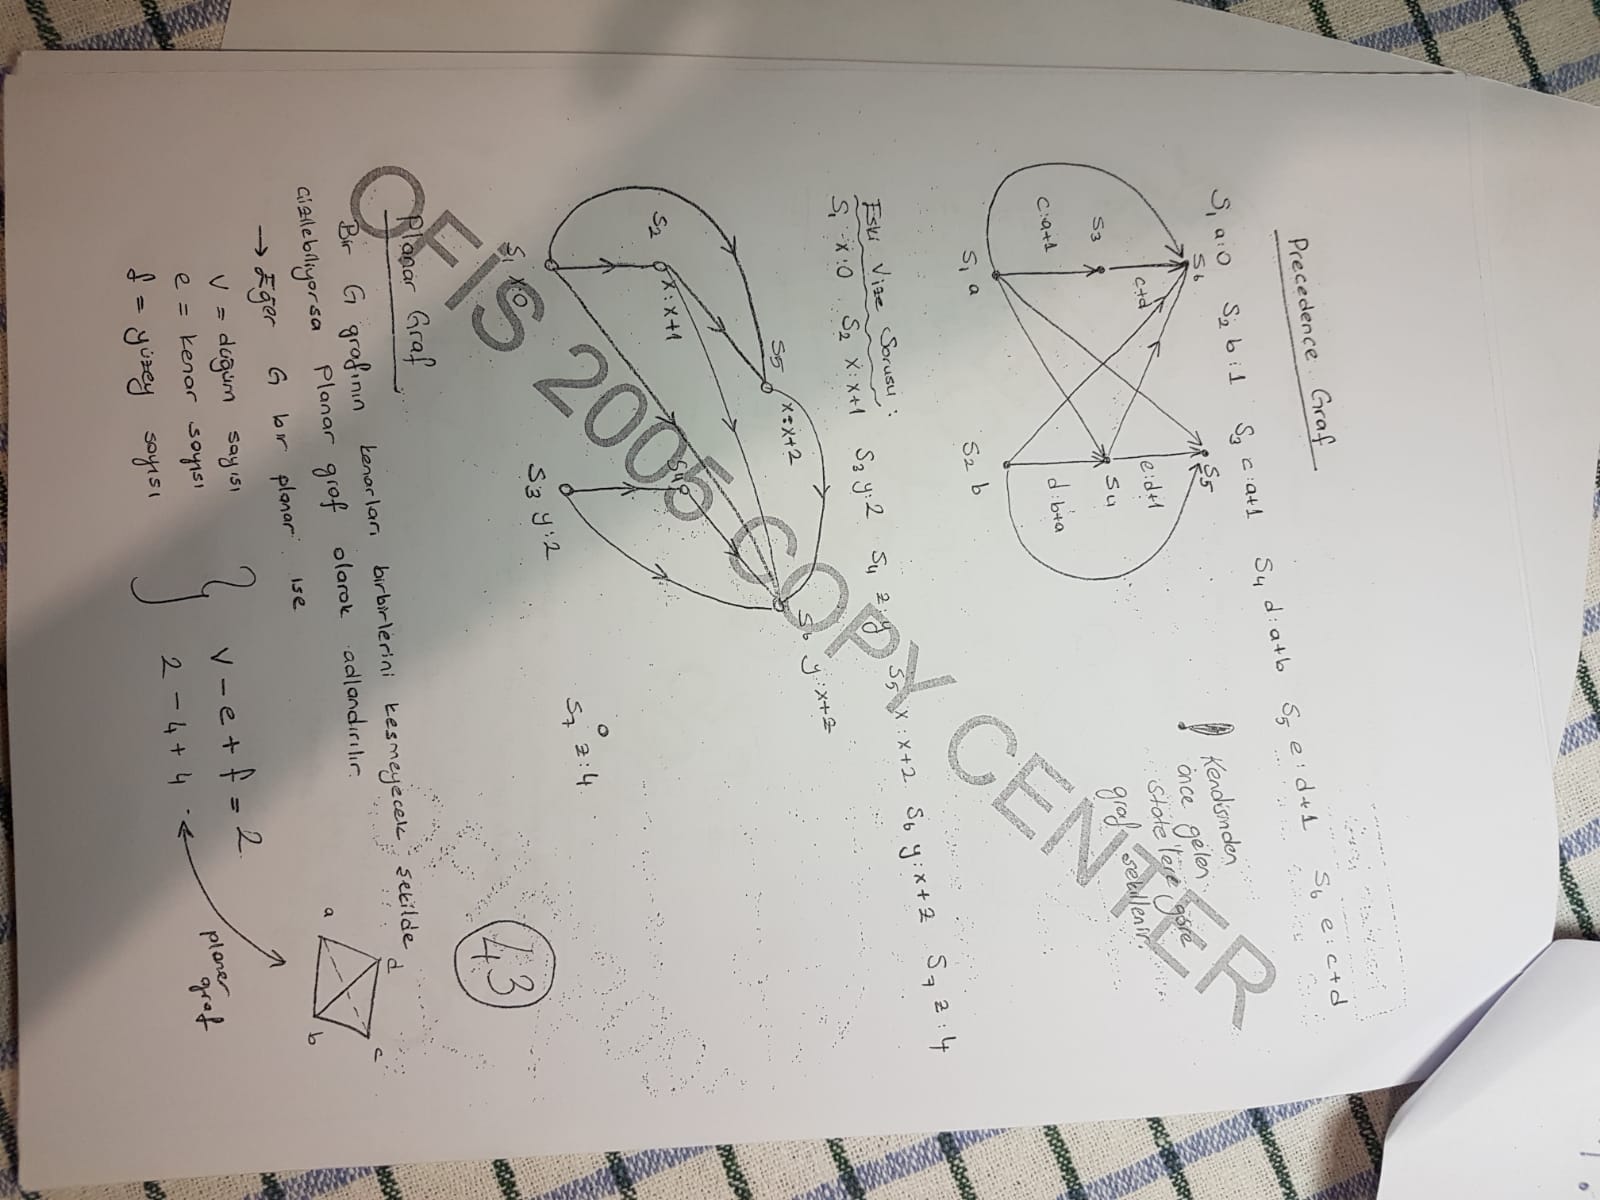 Precedence Graf
S1 a:0 S2 b:1 S3 c:a+1 S4 d:a+b S5 e:d+1 S6 e:c+d
S6
S5
c+d
e:d+1
S3
S4
c:a+1
d:b+a
S1 a
S2 b
! Kendisinden
önce gelen
state'lere göre
graf şekillenir.
Eski Vize Sorusu :
S1 x:0 S2 x:x+1 S3 y:2 S4 z:y S5 x:x+2 S6 y:x+z S7 z:4
S5 x:x+2
S6 y:x+z
S2 x:x+1
S4
S1 x:0
S3 y:2
S7 z:4
43
Planar Graf
Bir G grafının kenarları birbirlerini kesmeyecek şekilde
çizilebiliyorsa Planar graf olarak adlandırılır.
→ Eğer G bir planar ise
V = düğüm sayısı
e = kenar sayısı
f = yüzey sayısı
V - e + f = 2
2 - 4 + 4
d
c
a
b
planer
graf
OFİS 2005 COPY CENTER